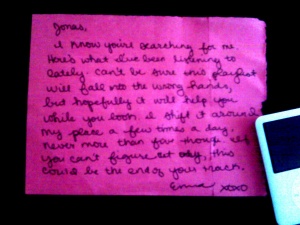 Jonas,
I know you're searching for me.
Here's what I've been listening to
lately. Can't be sure this playlist
will fall into the wrong hands,
but hopefully it will help you
while you look. I shift it around
my place a few times a day,
never more than four though. If
you can't figure out, this
could be the end of your track.
Emma xoxo